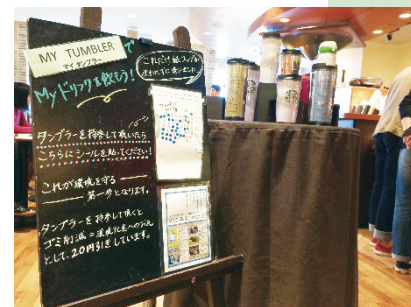 MY TUMBLER で
マイタンブラー
Myドリンクを飲もう!
これだけ紙コップが
使われずに済みました
タンブラーを持参して頂いたら
こちらにシールを貼ってください!
これが環境を守る
第一歩となります。
タンブラーを持参して頂くと
ゴミ削減=環境配慮へのお礼
として、20円引きしています。